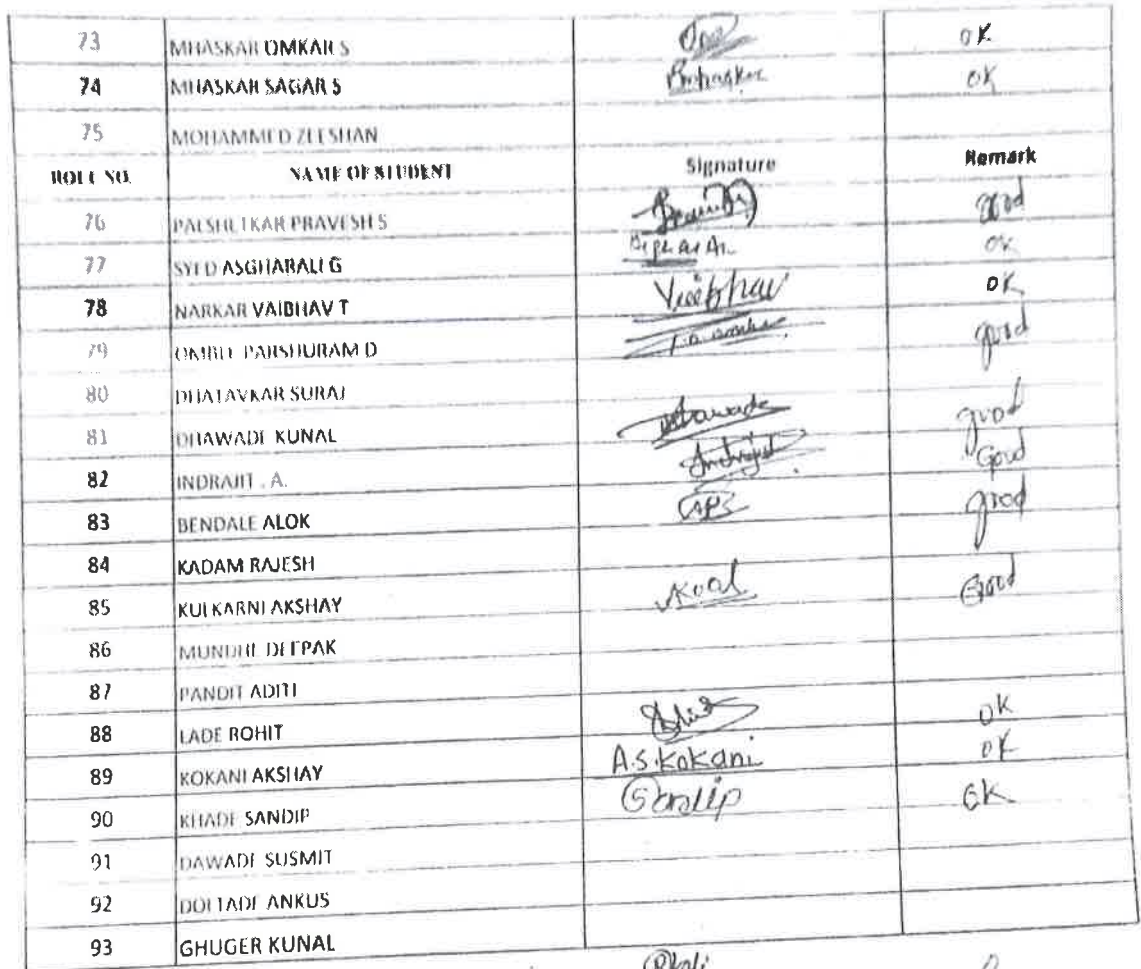 73 MHASKAR OMKAR S OK
74 MHASKAR SAGAR S Bmhaskar OK
75 MOHAMMED ZEESHAN
ROLL NO. NAME OF STUDENT Signature Remark
76 PALSHETKAR PRAVESH S good
77 SYED ASGHARALI G OK
78 NARKAR VAIBHAV T Vaibhav OK
79 OMBLE PARSHURAM D good
80 DHATAVKAR SURAJ
81 DHAWADE KUNAL good
82 INDRAJIT . A. Indrajit Good
83 BENDALE ALOK good
84 KADAM RAJESH
85 KULKARNI AKSHAY Good
86 MUNDHE DEEPAK
87 PANDIT ADITI
88 LADE ROHIT OK
89 KOKANI AKSHAY A.S.Kokani OK
90 KHADE SANDIP Sandip OK
91 DAWADE SUSMIT
92 DOLTADE ANKUS
93 GHUGER KUNAL